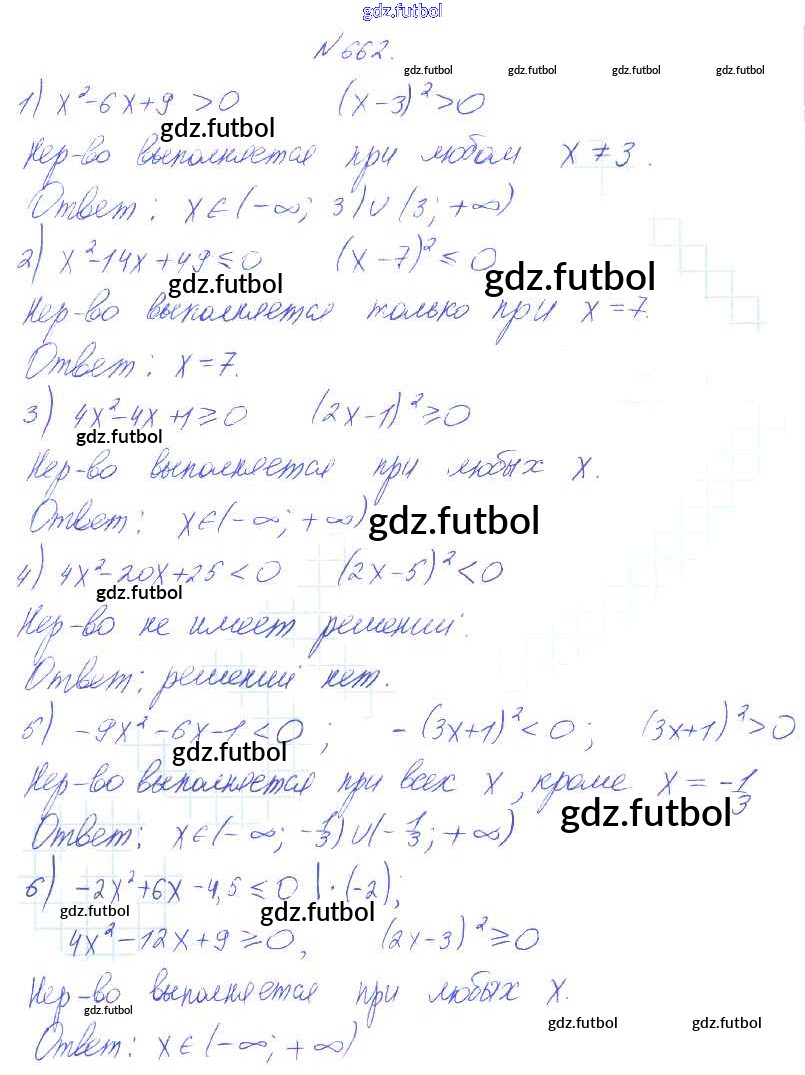 gdz.futbol
N 662.
gdz.futbol gdz.futbol gdz.futbol gdz.futbol
1) x²-6x+9 >0 (x-3)²>0
gdz.futbol
Нер-во выполняется при любом x ≠ 3.
Ответ: x∈(-∞; 3)∪(3; +∞)
2) x²-14x+49≤0 (x-7)²≤0
gdz.futbol gdz.futbol
Нер-во выполняется только при x=7.
Ответ: x=7.
3) 4x²-4x+1≥0 (2x-1)²≥0
gdz.futbol
Нер-во выполняется при любых x.
Ответ: x∈(-∞; +∞)
gdz.futbol
4) 4x²-20x+25<0 (2x-5)²<0
gdz.futbol
Нер-во не имеет решений.
Ответ: решений нет.
5) -9x²-6x-1<0; -(3x+1)²<0; (3x+1)²>0
gdz.futbol
Нер-во выполняется при всех x, кроме x = -1/3
gdz.futbol
Ответ: x∈(-∞; -1/3)∪(-1/3; +∞)
6) -2x²+6x-4,5≤0 |·(-2);
gdz.futbol gdz.futbol
4x²-12x+9≥0, (2x-3)²≥0
Нер-во выполняется при любых x.
gdz.futbol
gdz.futbol gdz.futbol
Ответ: x∈(-∞; +∞)